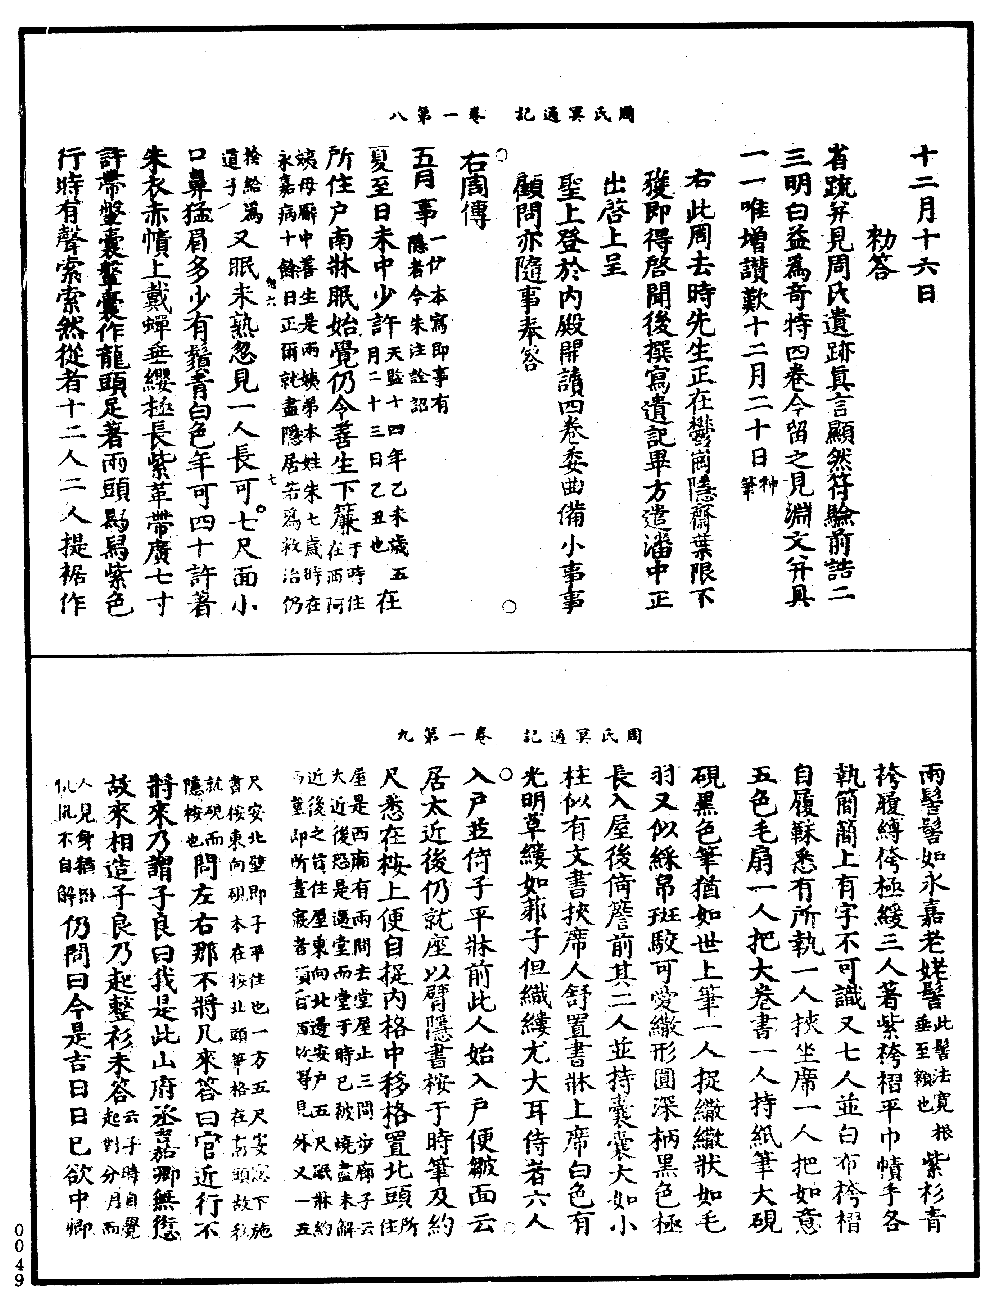 周氏冥通記　卷一第八
十二月十六日
勑答
省疏并見周氏遺跡眞言顯然符驗前誥二
三明白益爲奇特四卷今留之見淵文并具
一一唯增讚歎十二月二十日神筆
右此周去時先生正在鬱岡隱齋葉限不
獲即得啓聞後撰寫遺記畢方遣潘中正
出啓上呈
聖上登於內殿開讀四卷委曲備小事事
顧問亦隨事奉答
右周傳
五月事一伊本寫即事有隱者今朱注詮詔
夏至日未中少許天監十四年乙未歲五月二十三日乙丑也在
所住戶南牀眠始覺仍令善生下簾于時住在西阿
姨母廨中善生是兩姨弟本姓朱七歲時在
永嘉病十餘日正爾就盡隱居若爲救治仍
捨給爲道子又眠未熟忽見一人長可七尺面小
口鼻猛眉多少有鬚青白色年可四十許著
朱衣赤幘上戴蟬垂纓極長紫革帶廣七寸
許帶鞶囊鞶囊作龍頭足著兩頭舄舄紫色
行時有聲索索然從者十二人二人提裾作
周氏冥通記　卷一第九
兩髻髻如永嘉老姥髻此髻法寬根垂至額也紫衫青
袴履縛袴極緩三人著紫袴褶平巾幘手各
執簡簡上有字不可識又七人並白布袴褶
自履䩕悉有所執一人挾坐席一人把如意
五色毛扇一人把大卷書一人持紙筆大硯
硯黑色筆猶如世上筆一人捉繖繖狀如毛
羽又似綵帛斑駮可愛繖形圓深柄黑色極
長入屋後倚簷前其二人並持囊囊大如小
柱似有文書挾席人舒置書牀上席白色有
光明草縷如菲子但織縷尤大耳侍者六人
入戶並倚子平牀前此人始入戶便皺面云
居太近後仍就座以臂隱書桉于時筆及約
尺悉在桉上便自捉內格中移格置北頭所住
屋是西廂有兩間去堂屋止三間步廊子云
太近後恐是逼堂而堂于時已被燒盡未解
近後之旨住屋東向北邊安戶五尺眠牀約
尺安北壁即子平住也一方五尺安窓下施
書桉東向硯本在桉北頭筆格在南頭故移
就硯而隱桉也問左右那不將几來答曰官近行不
將來乃謂子良曰我是此山府丞嘉卿無愆
故來相造子良乃起整衫未答云子時自覺起對分月而
人見身猶卧仉仉不自解仍問曰今是吉日日已欲中卿
0049